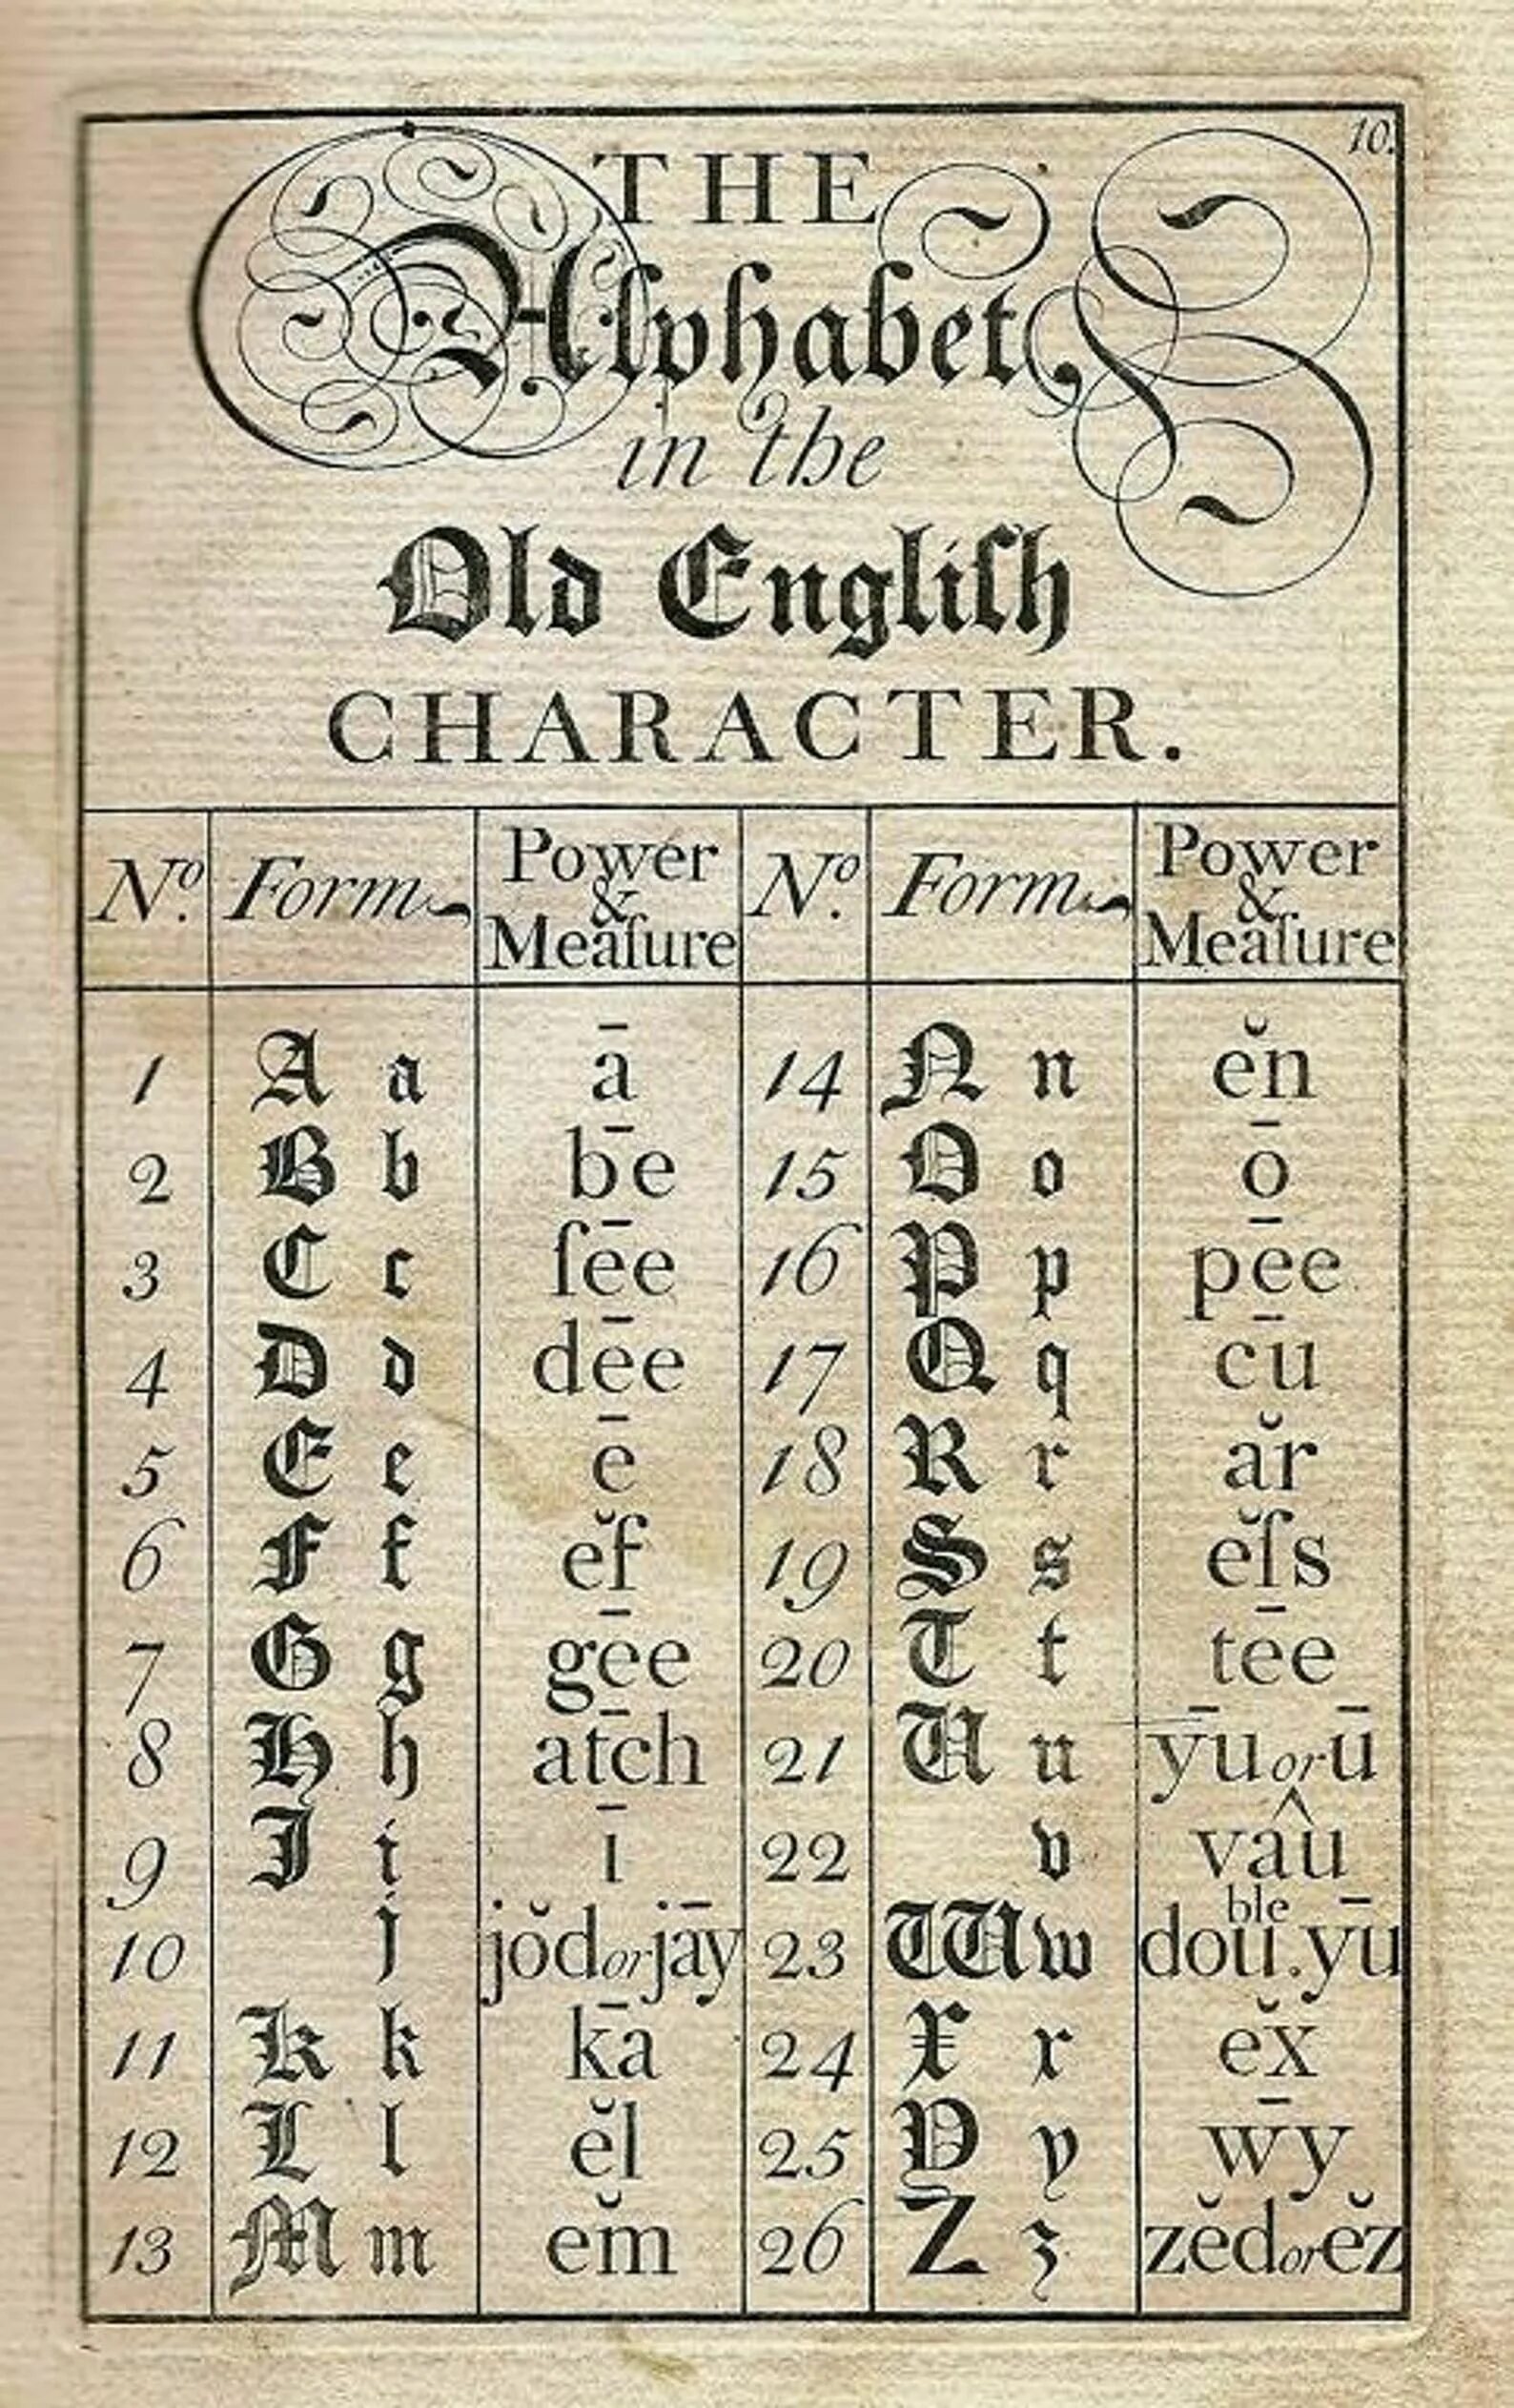 10.
THE
Alphabet,
in the
Old Engliſh
CHARACTER.
No. Form Power & Meaſure No. Form Power & Meaſure
1 A a ā 14 N n ĕn
2 B b bē 15 O o ō
3 C c ſēe 16 P p pēe
4 D d dēe 17 Q q cū
5 E e ē 18 R r ăr
6 F f ĕf 19 S s ĕſs
7 G g gēe 20 T t tēe
8 H h ātch 21 U u yū or ū
9 I i ī 22 v vâu
10 j jŏd or jāy 23 W w double. yū
11 K k kā 24 X x ĕx
12 L l ĕl 25 Y y wȳ
13 M m ĕm 26 Z z zĕd or ĕz